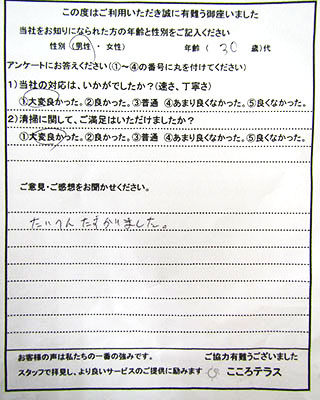 この度はご利用いただき誠に有難う御座いました
当社をお知りになられた方の年齢と性別をご記入ください
性別（男性 ・ 女性） 年齢（ 30 歳）代
アンケートにお答えください（①～④の番号に丸を付けてください）
1）当社の対応は、いかがでしたか？（速さ、丁寧さ）
①大変良かった。②良かった。③普通 ④あまり良くなかった。⑤良くなかった。
2）清掃に関して、ご満足はいただけましたか？
①大変良かった。②良かった。③普通 ④あまり良くなかった。⑤良くなかった。
ご意見・ご感想をお聞かせください。
たいへんたすかりました。
お客様の声は私たちの一番の強みです。 ご協力有難うございました
スタッフで拝見し、より良いサービスのご提供に励みます こころテラス